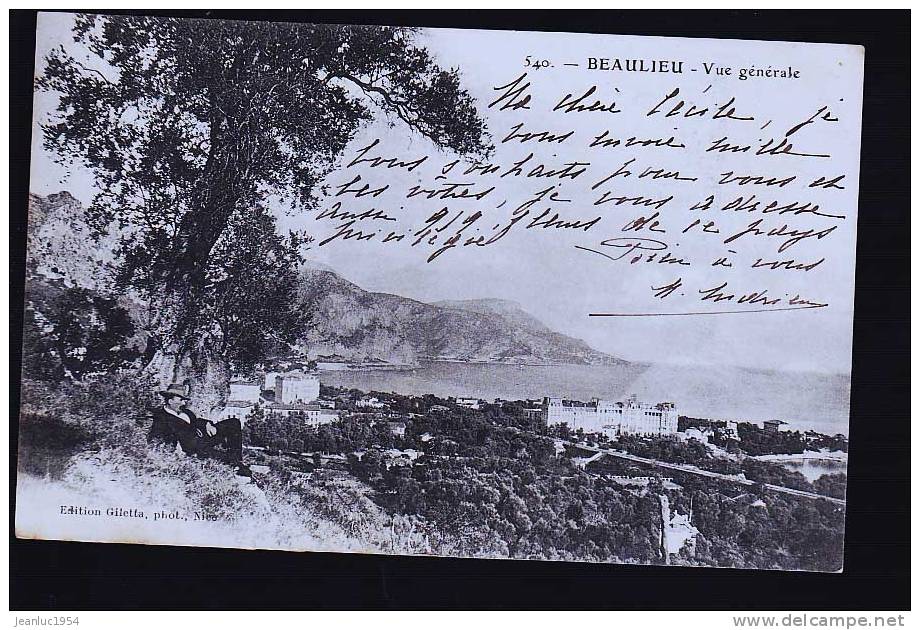 540. — BEAULIEU - Vue générale
Ma chère Cécile, je
vous envoie mille
bons souhaits pour vous et
les vôtres, je vous adresse
aussi de ce pays
privilégié
à vous
Edition Giletta, phot., Nice
jeanluc1954
www.delcampe.net